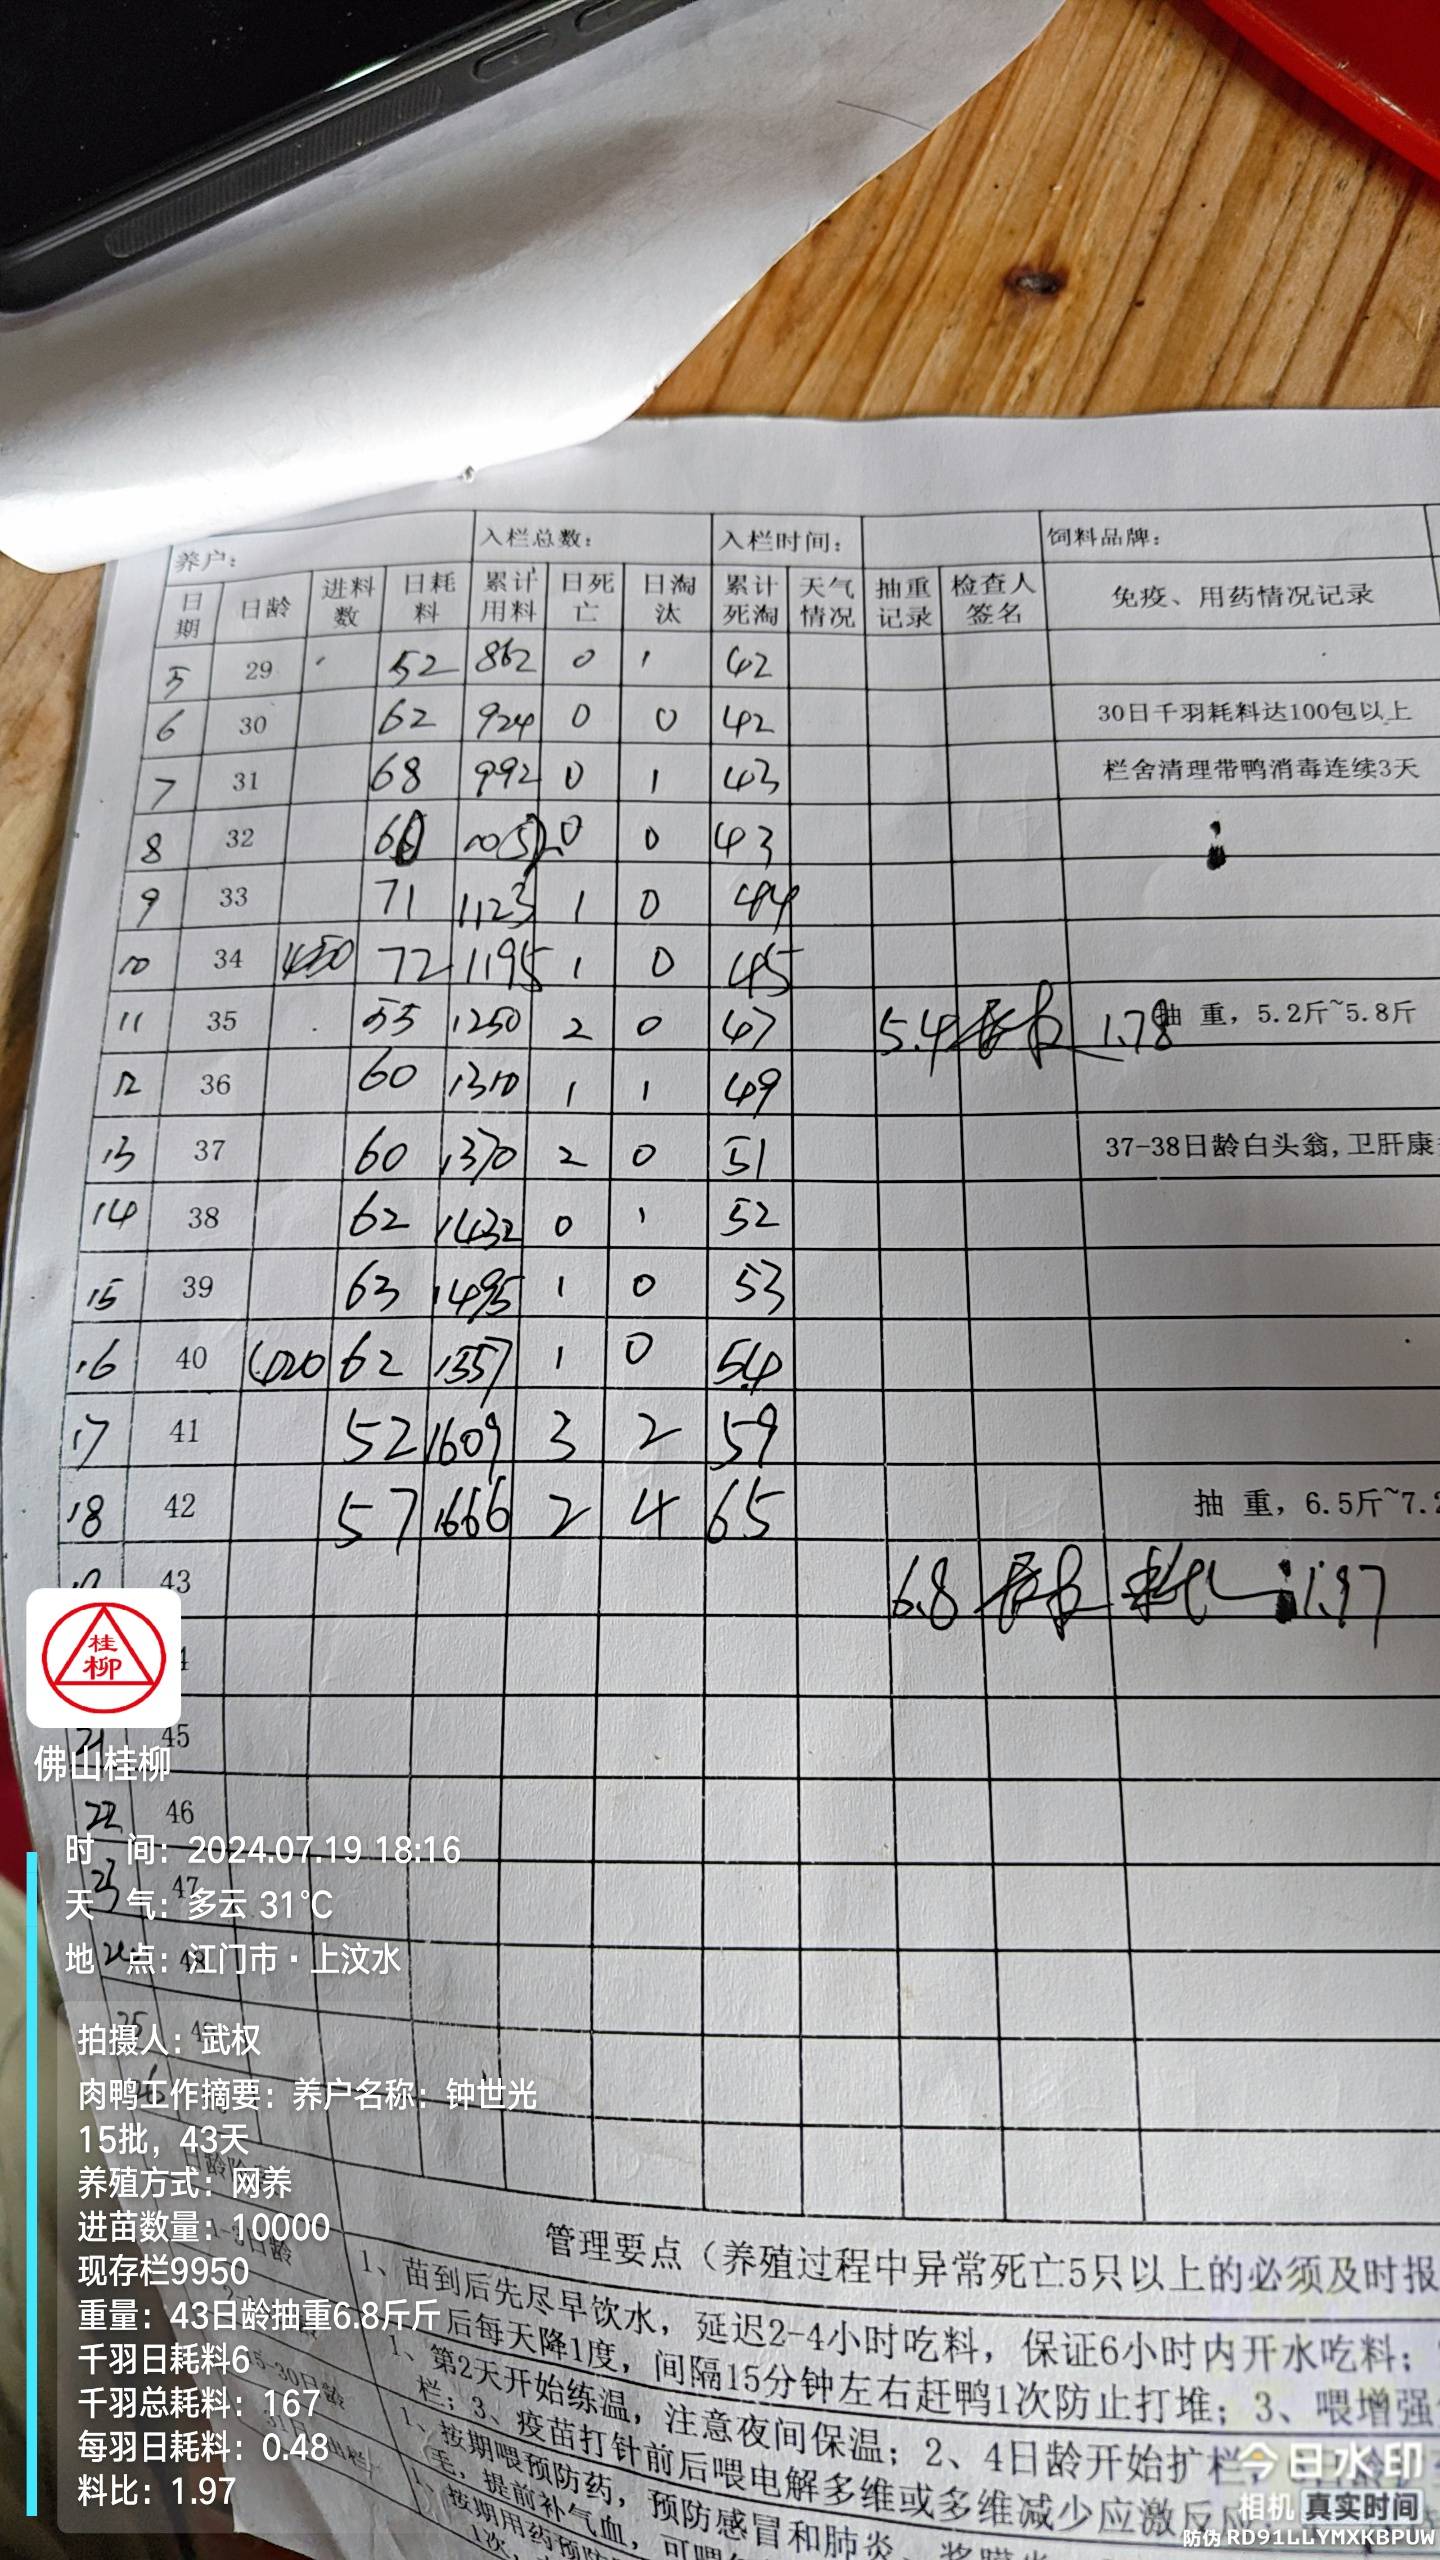 养户： 入栏总数： 入栏时间： 饲料品牌：
日期 日龄 进料数 日耗料 累计用料 日死亡 日淘汰 累计死淘 天气情况 抽重记录 检查人签名 免疫、用药情况记录
5 29 52 862 0 1 42
6 30 62 924 0 0 42 30日千羽耗料达100包以上
7 31 68 992 0 1 43 栏舍清理带鸭消毒连续3天
8 32 60 1052 0 0 43
9 33 71 1123 1 0 44
10 34 450 72 1195 1 0 45
11 35 55 1250 2 0 47 5.4 1.78 抽 重，5.2斤~5.8斤
12 36 60 1310 1 1 49
13 37 60 1370 2 0 51 37-38日龄白头翁,卫肝康
14 38 62 1432 0 1 52
15 39 63 1495 1 0 53
16 40 62 1557 1 0 54
17 41 52 1609 3 2 59
18 42 57 1666 2 4 65 抽 重，6.5斤~7.2
43 6.8 1.97
21 45
22 46
23 47
24 48
25
26
桂柳
佛山桂柳
时 间：2024.07.19 18:16
天 气：多云 31℃
地 点：江门市·上汶水
拍摄人：武权
肉鸭工作摘要：养户名称：钟世光
15批，43天
养殖方式：网养
进苗数量：10000
现存栏9950
重量：43日龄抽重6.8斤斤
千羽日耗料6
千羽总耗料：167
每羽日耗料：0.48
料比：1.97
管理要点（养殖过程中异常死亡5只以上的必须及时报
1、苗到后先尽早饮水，延迟2-4小时吃料，保证6小时内开水吃料；
后每天降1度，间隔15分钟左右赶鸭1次防止打堆；3、喂增强
1、第2天开始练温，注意夜间保温；2、4日龄开始扩栏，
栏；3、疫苗打针前后喂电解多维或多维减少应激反
1、按期喂预防药，预防感冒和肺炎、浆膜炎
毛，提前补气血，可喂
1、按期用药预防
1次，
今日水印
相机 真实时间
防伪 RD91LLYMXKBPUW